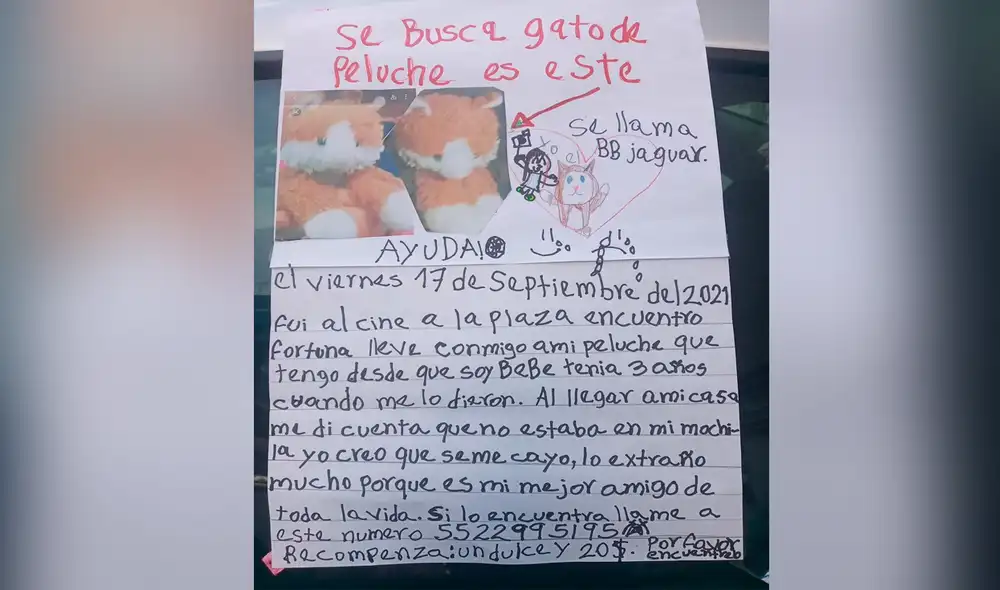 Se Busca gato de
peluche es este
Se llama
BB jaguar.
Yo el
AYUDA!
el viernes 17 de Septiembre del 2021
fui al cine a la plaza encuentro
fortuna lleve conmigo a mi peluche que
tengo desde que soy BeBe tenia 3 años
cuando me lo dieron. Al llegar a mi casa
me di cuenta que no estaba en mi mochi-
la yo creo que se me cayo, lo extraño
mucho porque es mi mejor amigo de
toda la vida. Si lo encuentra llame a
este numero 5522995195
Recompenza: un dulce y 20$. Por favor
encuentrenlo